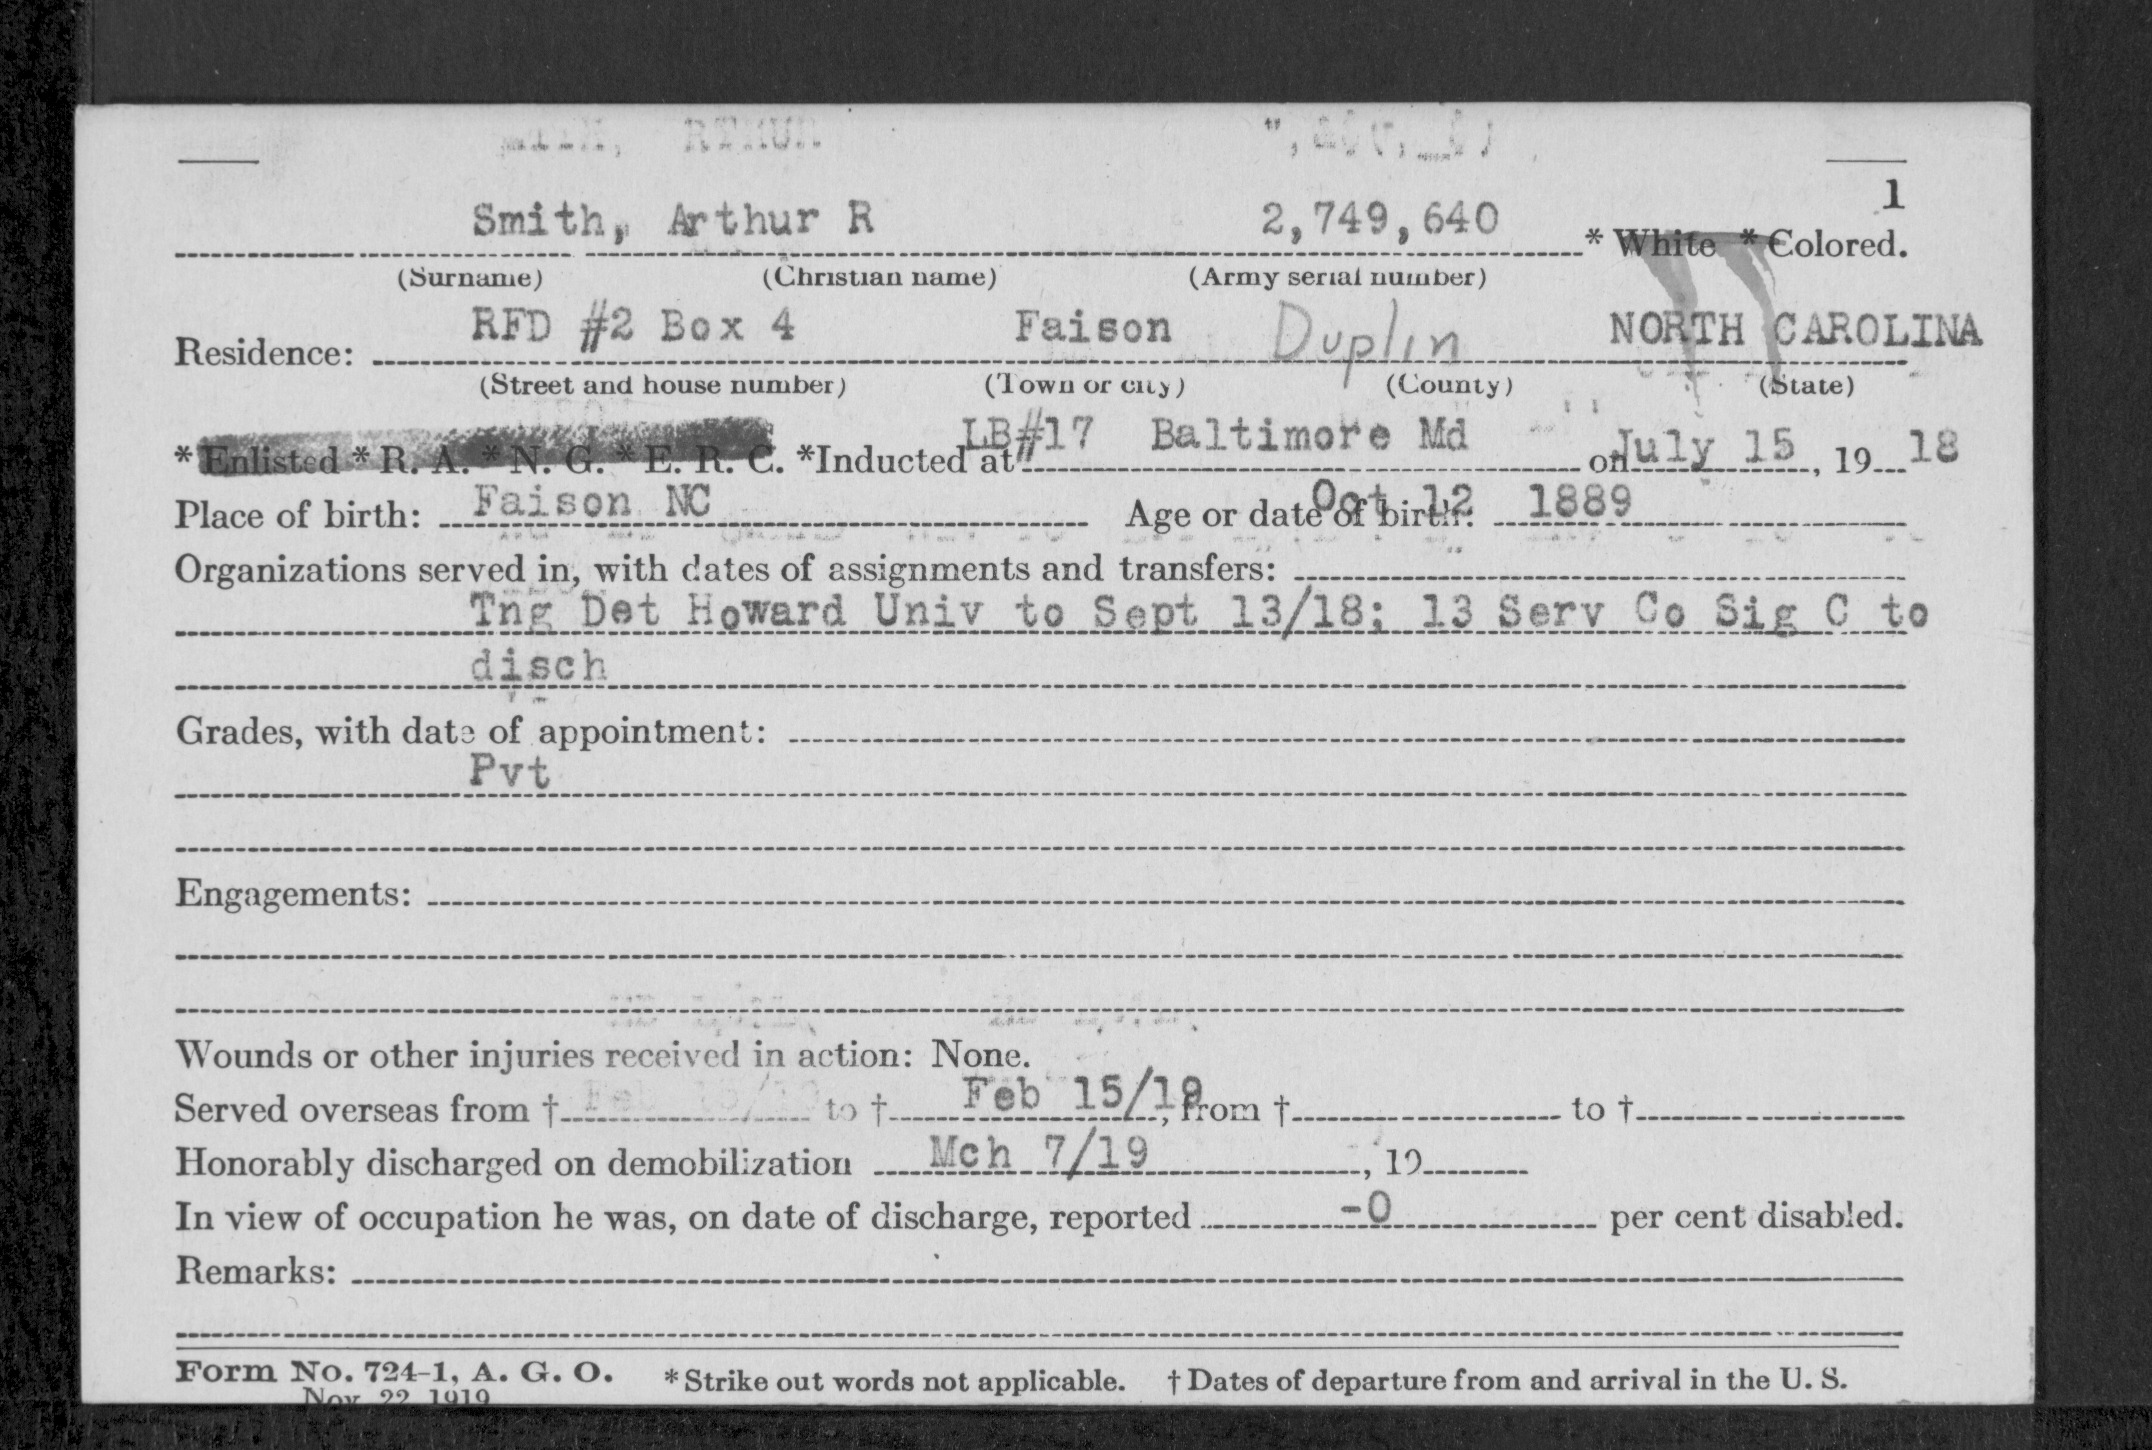 1
Smith, Arthur R 2,749,640 * White * Colored.
(Surname) (Christian name) (Army serial number)
Residence: RFD #2 Box 4 Faison Duplin NORTH CAROLINA
(Street and house number) (Town or city) (County) (State)
* Enlisted * R. A. * N. G. * E. R. C. *Inducted at LB#17 Baltimore Md on July 15, 19 18
Place of birth: Faison NC Age or date of birth: Oct 12 1889
Organizations served in, with dates of assignments and transfers:
Tng Det Howard Univ to Sept 13/18; 13 Serv Co Sig C to
disch
Grades, with date of appointment:
Pvt
Engagements:
Wounds or other injuries received in action: None.
Served overseas from † to † Feb 15/19, from † to †
Honorably discharged on demobilization Mch 7/19, 19
In view of occupation he was, on date of discharge, reported -0 per cent disabled.
Remarks:
Form No. 724-1, A. G. O. * Strike out words not applicable. † Dates of departure from and arrival in the U. S.
Nov. 22, 1919